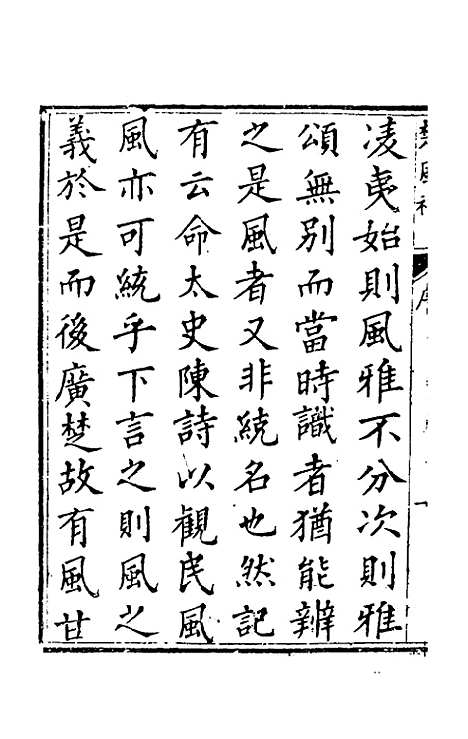 凌夷始則風雅不分次則雅
頌無別而當時識者猶能辨
之是風者又非統名也然記
有云命太史陳詩以觀民風
風亦可統乎下言之則風之
義於是而後廣楚故有風甘